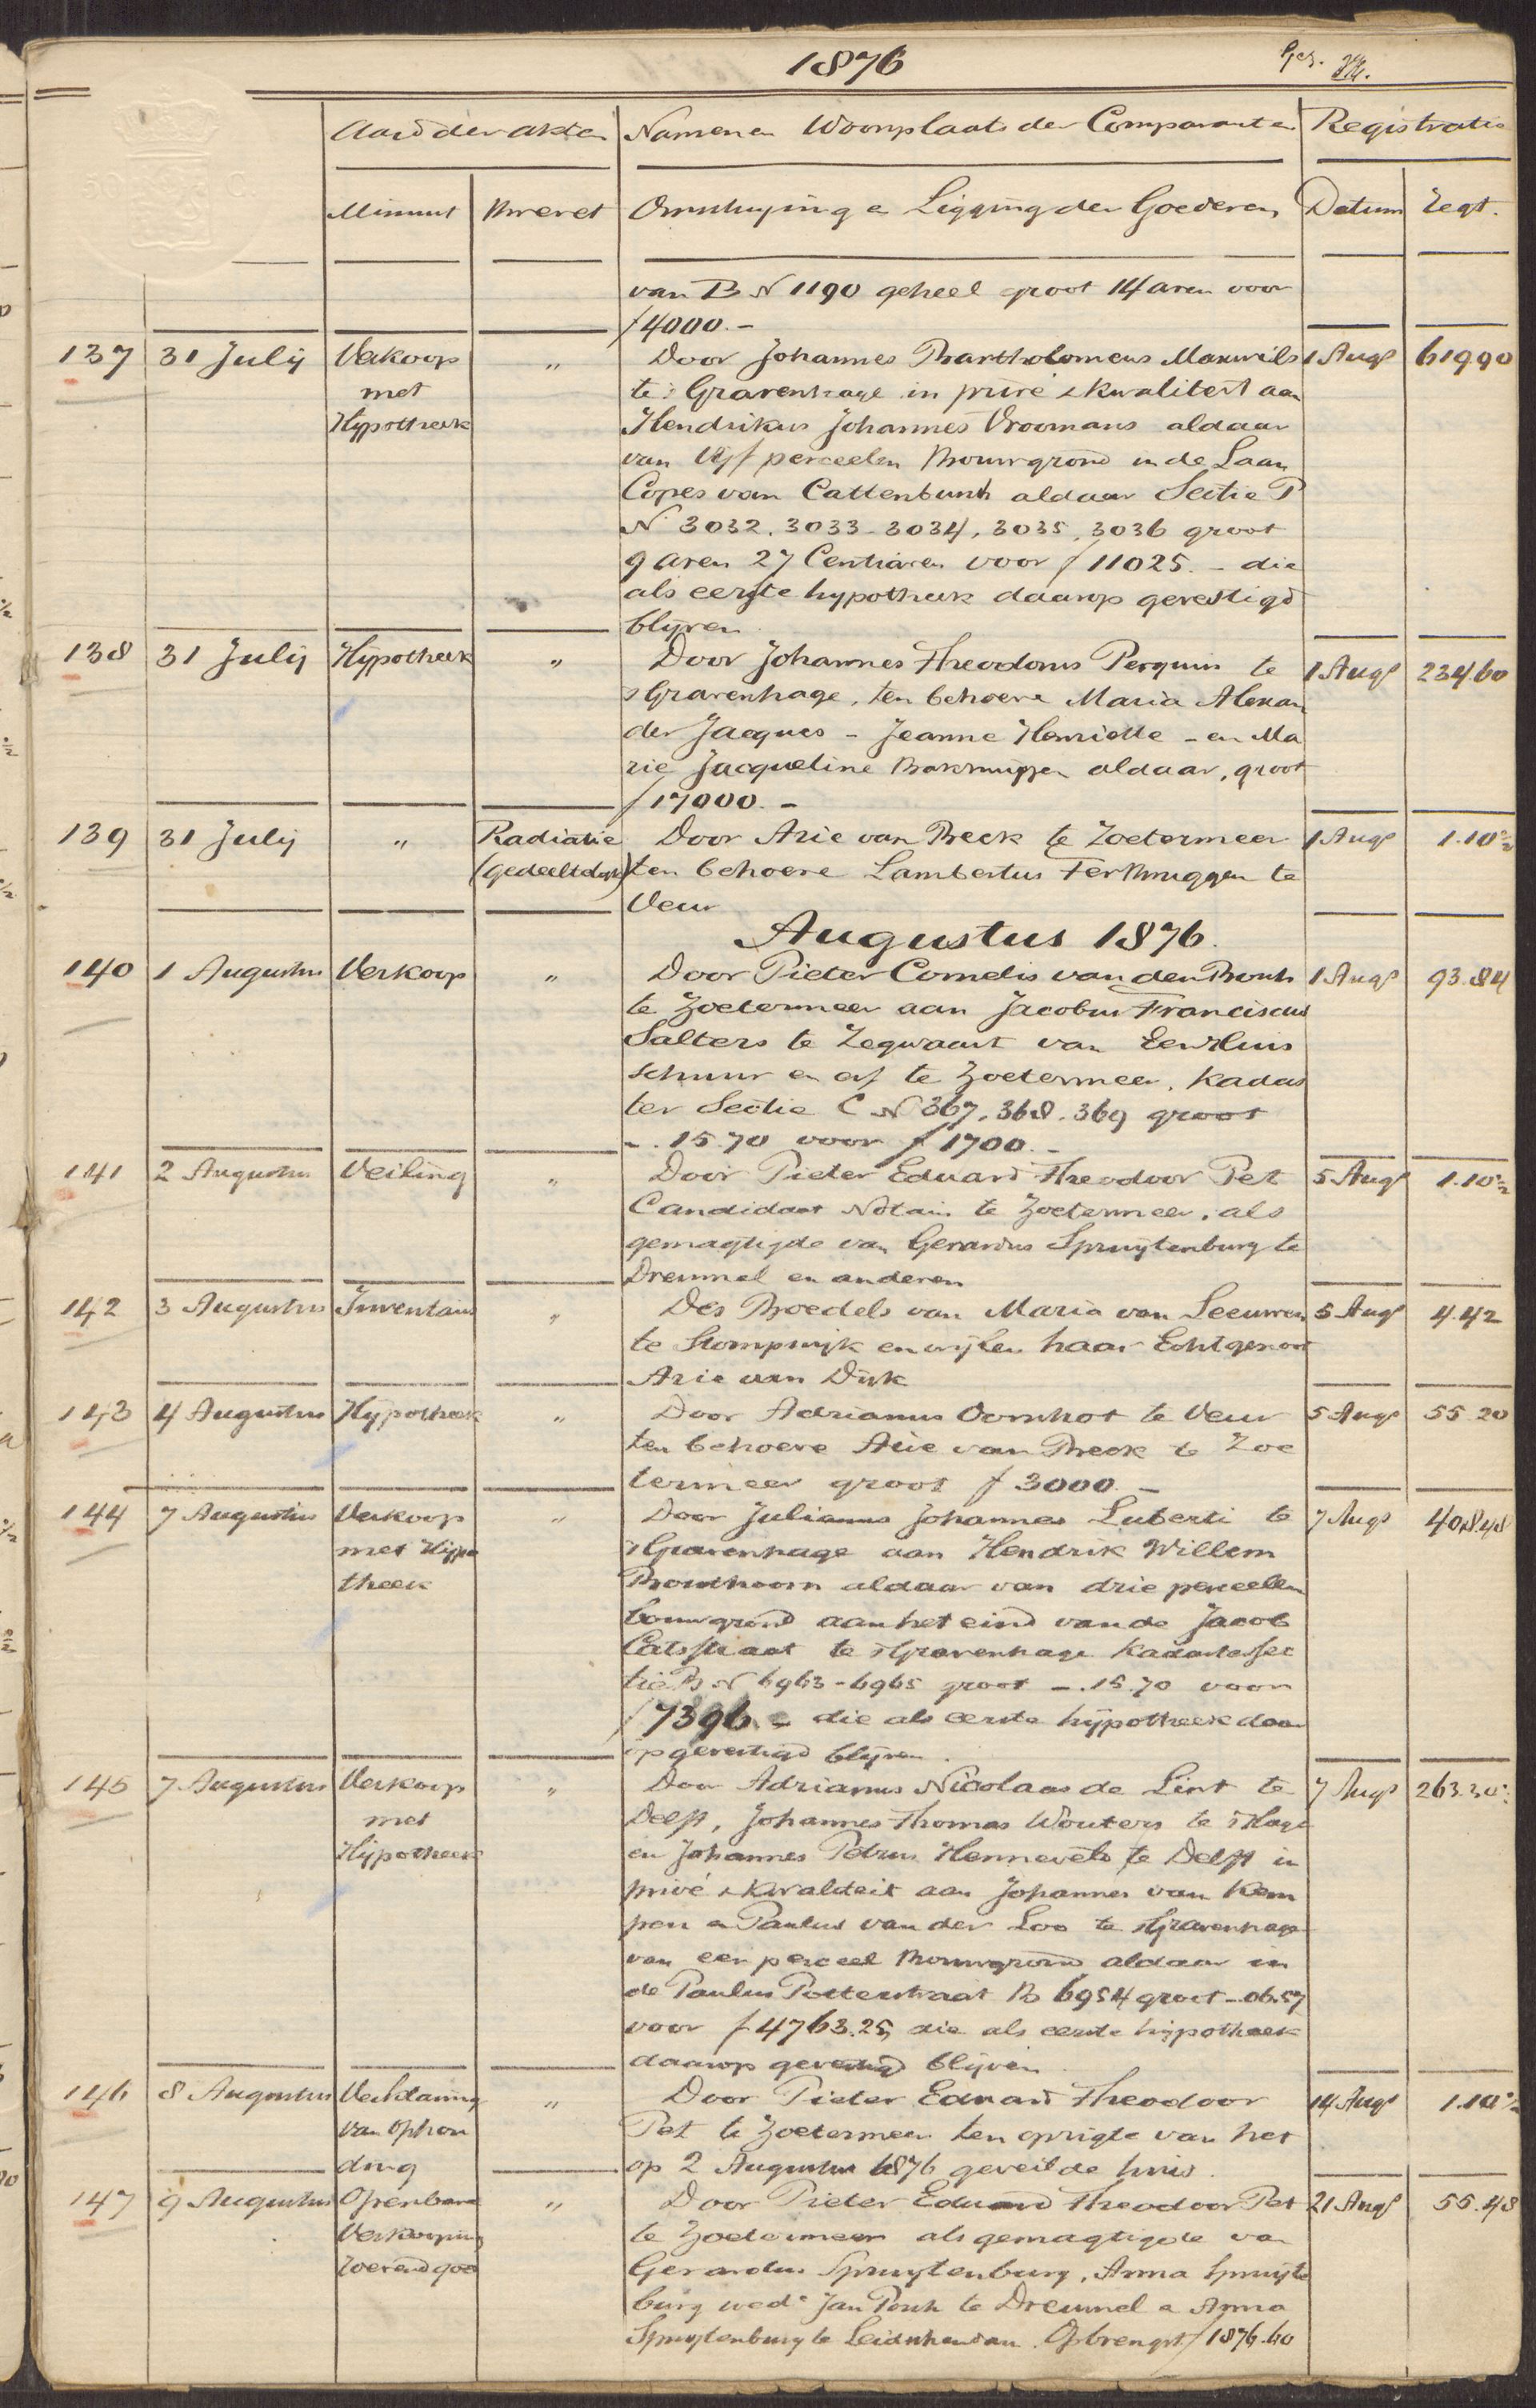 1876
Aard der akten Namen en Woonplaats der Comparanten Registratie
Minuut Brevet Omschrijving en Ligging der Goederen Datum Regt.
van B N 1190 geheel groot 14 aren voor
f 4000.-
137 31 Julij Verkoop " Door Johannes Bartholomeus 1 Augs 619.90
met te 's Gravenhage in privé & kwaliteit aan
Hypotheek Hendrikus Johannes Vroomans aldaar
van Vijf perceelen Bouwgrond in de Laan
Copes van Cattenburch aldaar Sectie P
N 3032. 3033 - 3034, 3035, 3036 groot
9 aren 27 Centiaren voor f 11025.- die
als eerste hypotheek daarop gevestigd
blijven.
138 31 Julij Hypotheek " Door Johannes Theodorus Perquin te 1 Augs 234.60
's Gravenhage, ten behoeve Maria Alexan
der Jacques - Jeanne Henriette - en Ma
rie Jacqueline aldaar, groot
f 17000.-
139 31 Julij " Radiatie Door Arie van Beek te Zoetermeer 1 Augs 1.10½
(gedeeltelijk) ten behoeve Lambertus TerBruggen te
Veur
Augustus 1876.
140 1 Augustus Verkoop " Door Pieter Cornelis van den Bosch 1 Augs 93.84
te Zoetermeer aan Jacobus Franciscus
Salters te Zegwaart van Een Huis
schuur en erf te Zoetermeer, Kadas
ter Sectie C N 367. 368. 369 groot
-. 15.70 voor f 1700.-
141 2 Augustus Veiling " Door Pieter Eduard Theodoor Pet 5 Augs 1.10½
Candidaat Notaris te Zoetermeer, als
gemagtigde van Gerardus Spruijtenburg te
Dreumel en anderen
142 3 Augustus Inventaris " Des Boedels van Maria van Leeuwen 5 Augs 4.42
te Stompwijk en wijlen haar Echtgenoot
Arie van Dijk
143 4 Augustus Hypotheek " Door Adrianus Oomhot te Veur 5 Augs 55.20
ten behoeve Arie van Beek te Zoe
termeer groot f 3000.-
144 7 Augustus Verkoop " Door Julianus Johannes Luberti te 7 Augs 408.48
met Hypo 's Gravenhage aan Hendrik Willem
theek aldaar van drie perceelen
bouwgrond aan het eind van de Jacob
Catsstraat te 's Gravenhage Kadaster Sec
tie B N 6963-6965 groot -. 15.70 voor
f 7396.- die als eerste hypotheek daar
op gevestigd blijven.
145 7 Augustus Verkoop " Door Adrianus Nicolaas de Lint te 7 Augs 263.30½
met Delft, Johannes Thomas Wouters te 's Hage
Hypotheek en Johannes Petrus Henneveld te Delft in
privé & kwaliteit aan Johannes van Kem
pen en Paulus van der Loo te 's Gravenhage
van een perceel Bouwgrond aldaar in
de Paulus Potterstraat B 6954 groot -.06.57
voor f 4763.25, die als eerste hypotheek
daarop gevestigd blijven
146 8 Augustus Verklaring " Door Pieter Eduard Theodoor 14 Augs 1.10½
van Ophou Pet te Zoetermeer ten oprigte van het
ding op 2 Augustus 1876 geveilde huis.
147 9 Augustus Openbare " Door Pieter Eduard Theodoor Pet 21 Augs 55.48
Verkooping te Zoetermeer als gemagtigde van
Roerend goed Gerardus Spruytenburg, Anna Spruijte
burg wede Jan te Dreumel en Anna
Spruytenburg te Leidschendam. Opbrengst f 1876.60